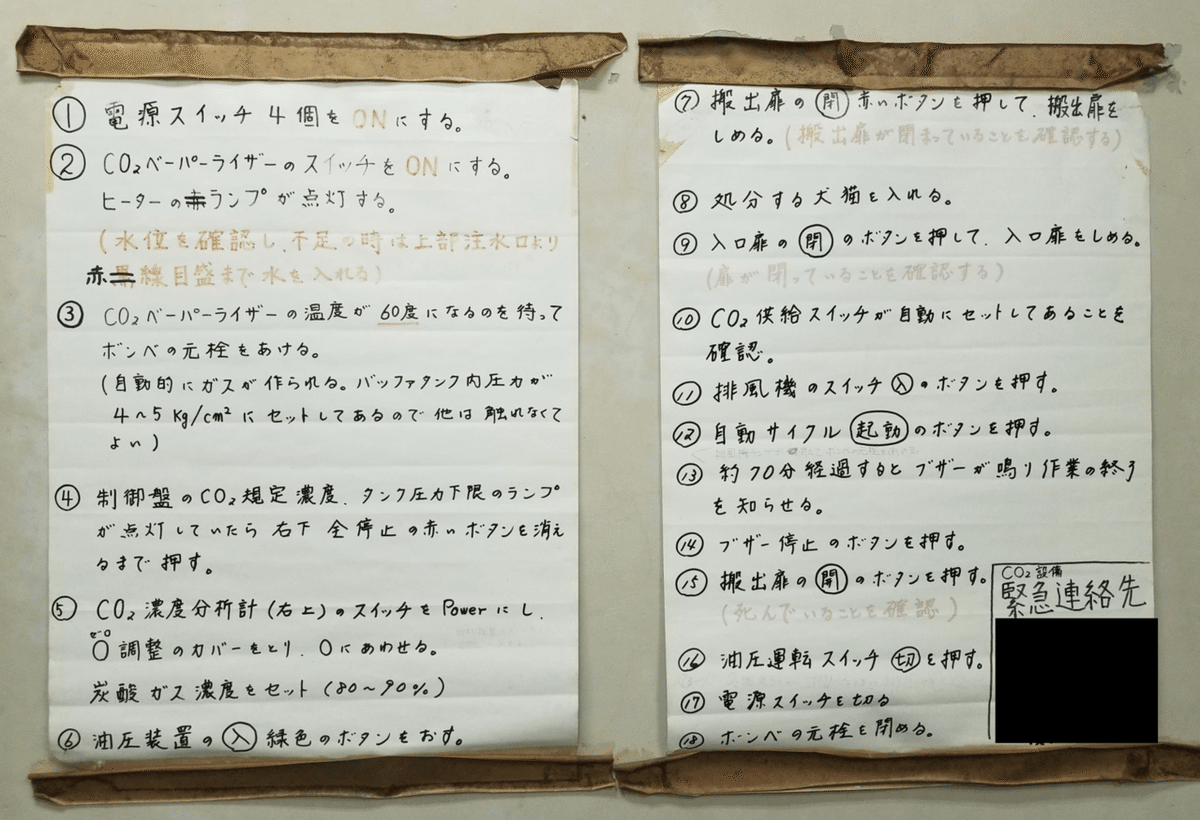 ① 電源スイッチ4個をONにする。
② CO₂ベーパーライザーのスイッチをONにする。
ヒーターの赤ランプが点灯する。
(水位を確認し、不足の時は上部注水口より
赤線目盛まで水を入れる)
③ CO₂ベーパーライザーの温度が60度になるのを待って
ボンベの元栓をあける。
(自動的にガスが作られる。バッファタンク内圧力が
4~5 Kg/cm²にセットしてあるので他は触れなくて
よい)
④ 制御盤のCO₂規定濃度、タンク圧力下限のランプ
が点灯していたら右下 全停止の赤いボタンを消え
るまで押す。
⑤ CO₂濃度分析計(右上)のスイッチをPowerにし、
ゼロ
0調整のカバーをとり、0にあわせる。
炭酸ガス濃度をセット(80~90%)
⑥ 油圧装置の入緑色のボタンをおす。
⑦ 搬出扉の閉赤いボタンを押して、搬出扉を
しめる。(搬出扉が閉まっていることを確認する)
⑧ 処分する犬猫を入れる。
⑨ 入口扉の閉のボタンを押して、入口扉をしめる。
(扉が閉っていることを確認する)
⑩ CO₂供給スイッチが自動にセットしてあることを
確認。
⑪ 排風機のスイッチ入のボタンを押す。
⑫ 自動サイクル起動のボタンを押す。
⑬ 約70分経過するとブザーが鳴り作業の終了
を知らせる。
⑭ ブザー停止のボタンを押す。
⑮ 搬出扉の開のボタンを押す。
(死んでいることを確認)
⑯ 油圧運転スイッチ切を押す。
⑰ 電源スイッチを切る
⑱ ボンベの元栓を閉める。
CO₂設備
緊急連絡先